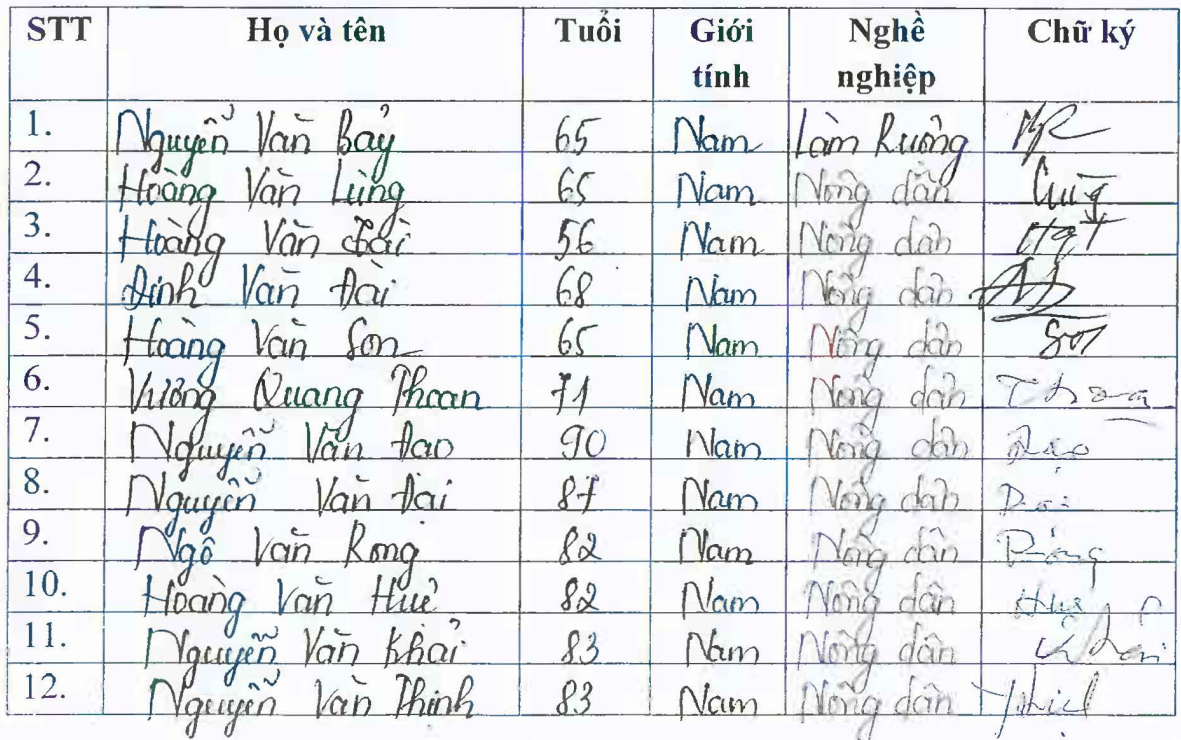 STT Họ và tên Tuổi Giới tính Nghề nghiệp Chữ ký
1. Nguyễn Văn Bảy 65 Nam Làm Ruộng
2. Hoàng Văn Lùng 65 Nam Nông dân
3. Hoàng Văn 56 Nam Nông dân
4. Đinh Văn Đài 68 Nam Nông dân
5. Hoàng Văn Sơn 65 Nam Nông dân Sơn
6. Vương Quang Thoan 71 Nam Nông dân
7. Nguyễn Văn Đao 90 Nam Nông dân
8. Nguyễn Văn Đai 87 Nam Nông dân
9. Ngô Văn Rong 82 Nam Nông dân
10. Hoàng Văn Huê 82 Nam Nông dân
11. Nguyễn Văn Khải 83 Nam Nông dân
12. Nguyễn Văn Thinh 83 Nam Nông dân